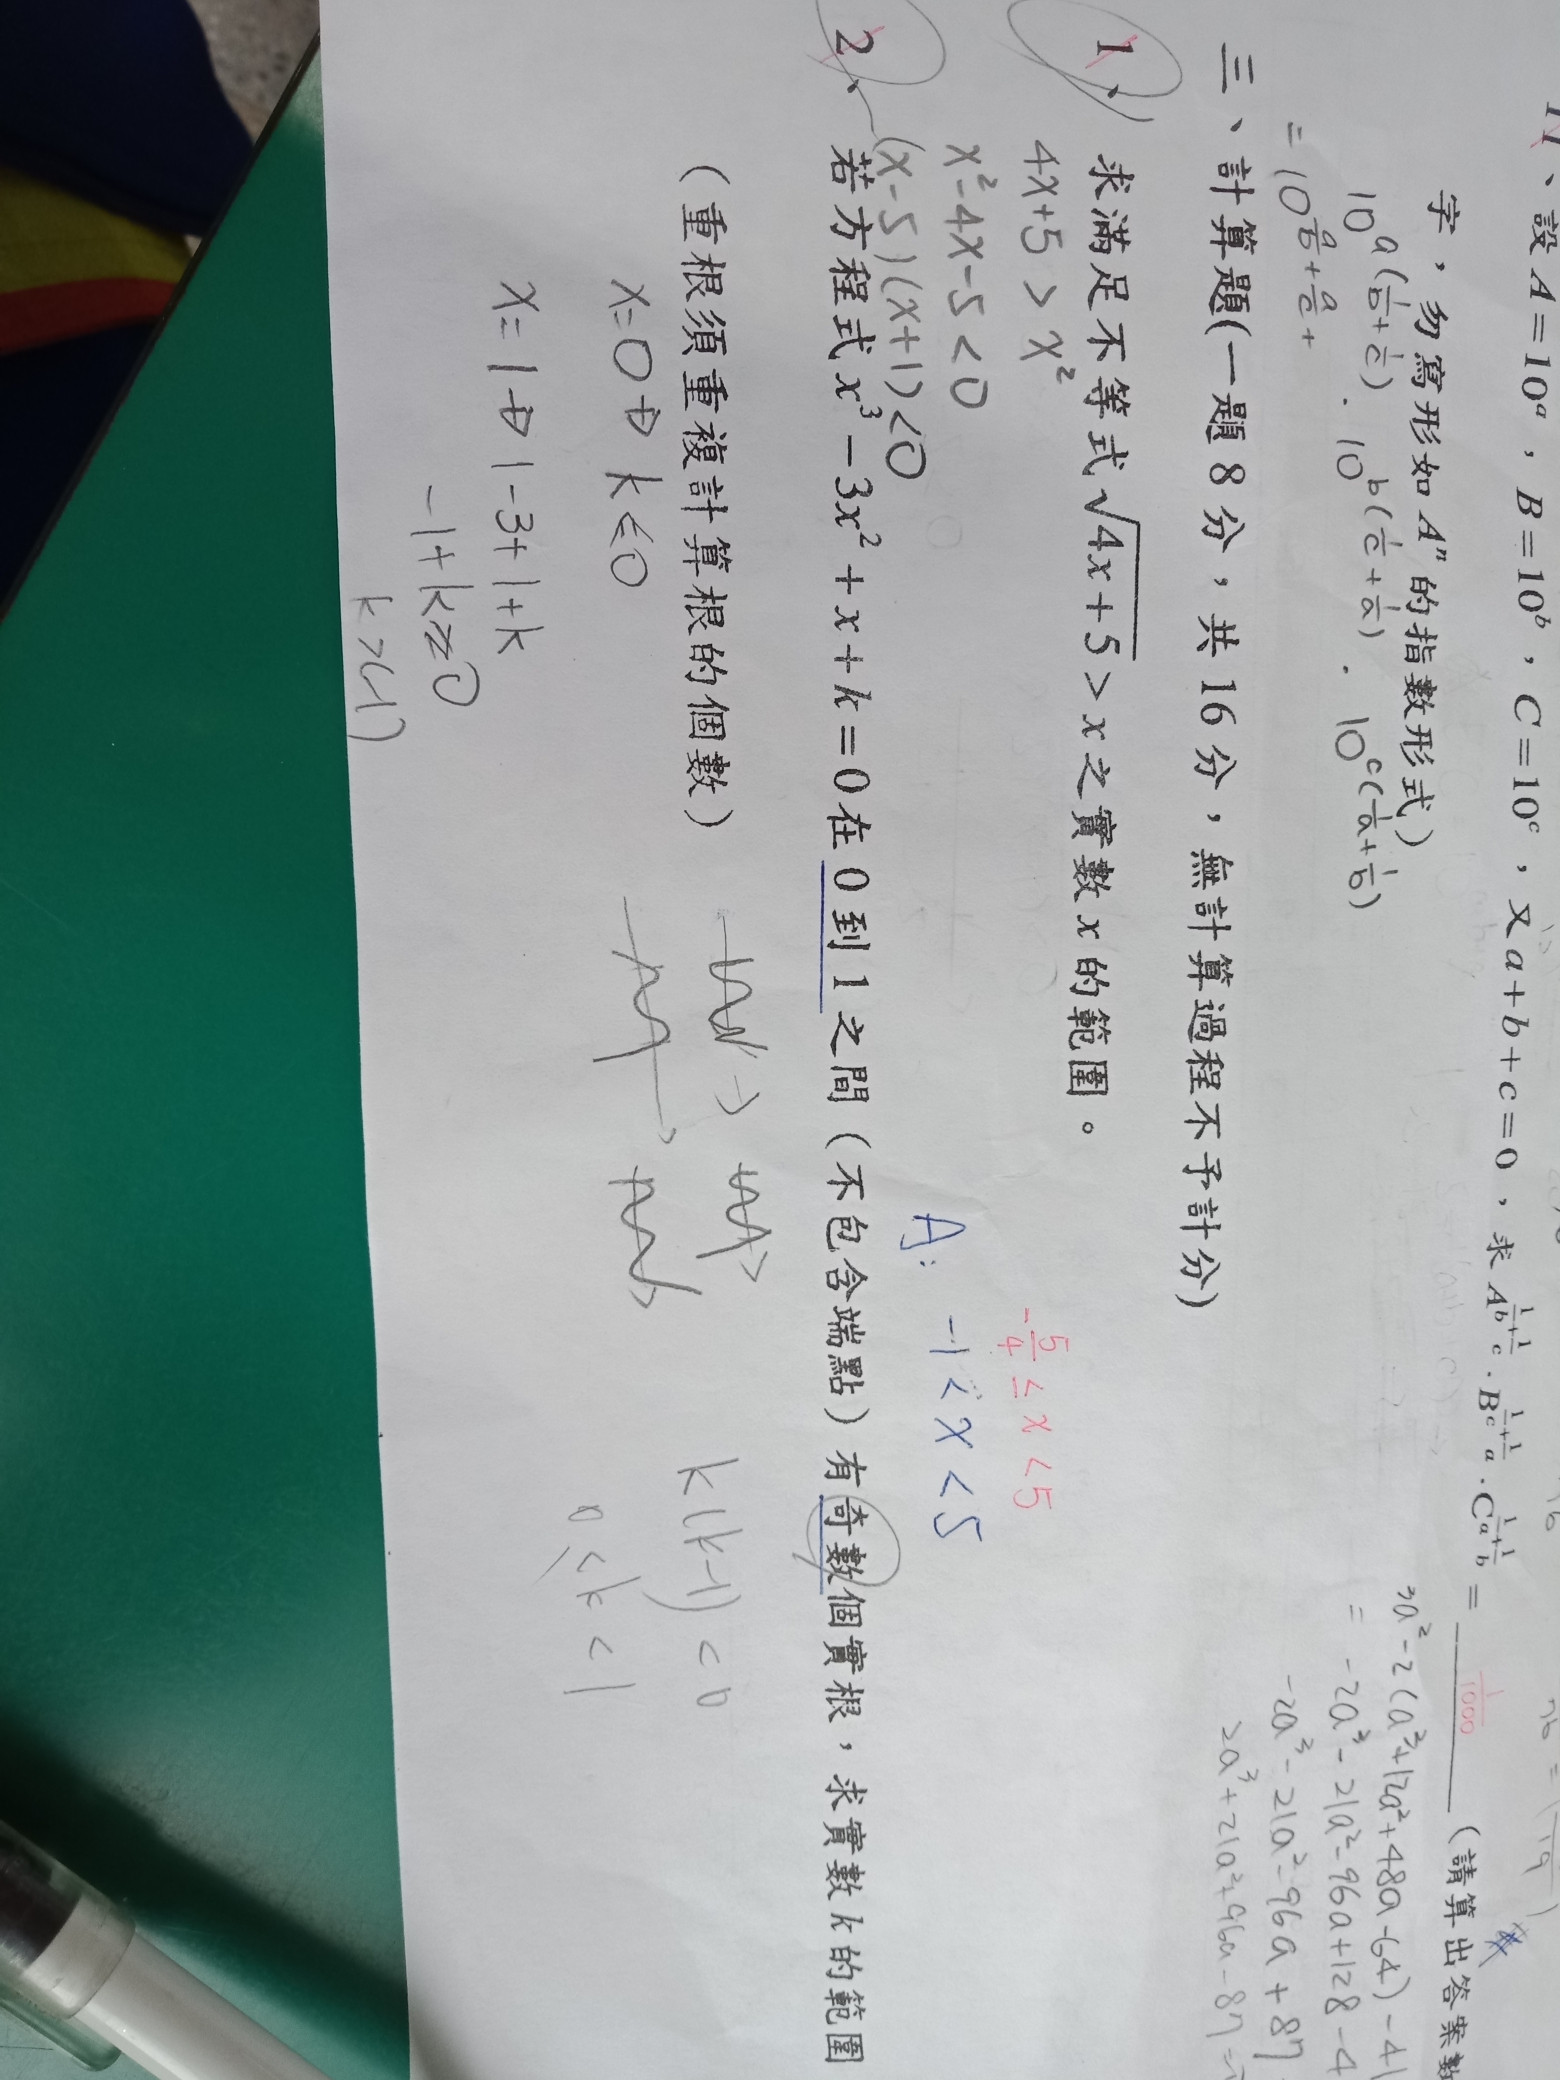 11、設 A＝10^a，B＝10^b，C＝10^c，又 a＋b＋c＝0，求 A^{1/b+1/c}．B^{1/c+1/a}．C^{1/a+1/b}＝ 1/1000 （請算出答案數
字，勿寫形如 A^n 的指數形式）
10^{a(1/b+1/c)}．10^{b(1/c+1/a)}．10^{c(1/a+1/b)}
= 10^{a/b+a/c+
3a²-2(a³+12a²+48a-64)-41
= -2a³-21a²-96a+128-4
-2a³-21a²-96a+87
2a³+21a²+96a-87=
三、計算題(一題 8 分，共 16 分，無計算過程不予計分)
1、求滿足不等式√(4x＋5)＞x 之實數 x 的範圍。
4x+5>x²
x²-4x-5<0
(x-5)(x+1)<0
-5/4≤x<5
A: -1<x<5
2、若方程式 x³－3x²＋x＋k＝0 在 0 到 1 之間（不包含端點）有奇數個實根，求實數 k 的範圍
（重根須重複計算根的個數）
x=0 k≤0
x=1 1-3+1+k
-1+k≥0
k(k-1)<0
0<k<1